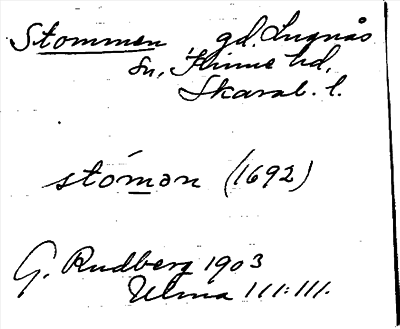 Stommen gd. Lugnås
sn, Kinne hd,
Skarab. l.
stómən (1692)
G. Rudberg 1903
Ulma 111:111.